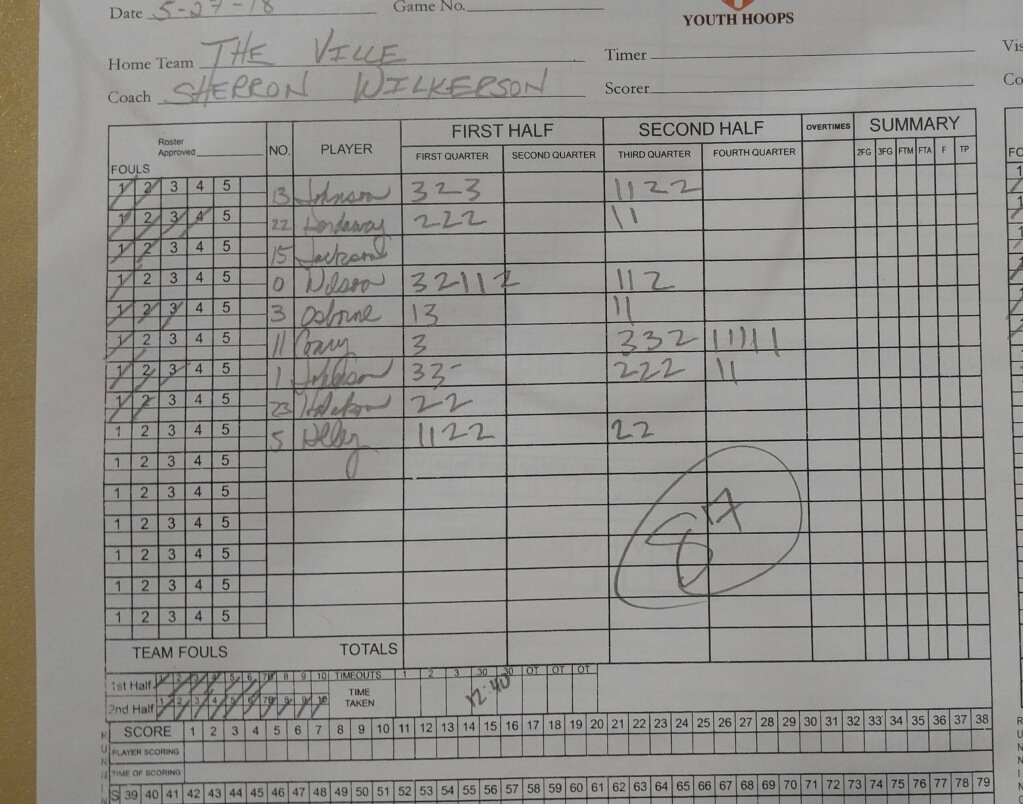 Date 5-27-18 Game No.
YOUTH HOOPS
Home Team THE VILLE Timer
Coach SHERRON WILKERSON Scorer
Roster Approved
FOULS NO. PLAYER FIRST HALF SECOND HALF OVERTIMES SUMMARY
FIRST QUARTER SECOND QUARTER THIRD QUARTER FOURTH QUARTER 2FG 3FG FTM FTA F TP
1 2 3 4 5 13 Johnson 3 2 3 1 1 2 2
1 2 3 4 5 22 Hordaway 2 2 2 1 1
1 2 3 4 5 15 Jackson
1 2 3 4 5 0 Wilson 3 2 1 1 2 1 1 2
1 2 3 4 5 3 Osborne 1 3 1 1
1 2 3 4 5 11 3 3 3 2 1 1 1 1 1
1 2 3 4 5 1 Johnson 3 3 2 2 2 1 1
1 2 3 4 5 23 2 2
1 2 3 4 5 5 1 1 2 2 2 2
1 2 3 4 5
1 2 3 4 5
1 2 3 4 5 87
1 2 3 4 5
1 2 3 4 5
1 2 3 4 5
TEAM FOULS TOTALS
1st Half 1 2 3 4 5 6 7B 8 9 10 TIMEOUTS 1 2 3 30 30 OT OT OT
2nd Half 1 2 3 4 5 6 7B 8 9 10 TIME TAKEN 12:40
SCORE 1 2 3 4 5 6 7 8 9 10 11 12 13 14 15 16 17 18 19 20 21 22 23 24 25 26 27 28 29 30 31 32 33 34 35 36 37 38
PLAYER SCORING
TIME OF SCORING
S 39 40 41 42 43 44 45 46 47 48 49 50 51 52 53 54 55 56 57 58 59 60 61 62 63 64 65 66 67 68 69 70 71 72 73 74 75 76 77 78 79